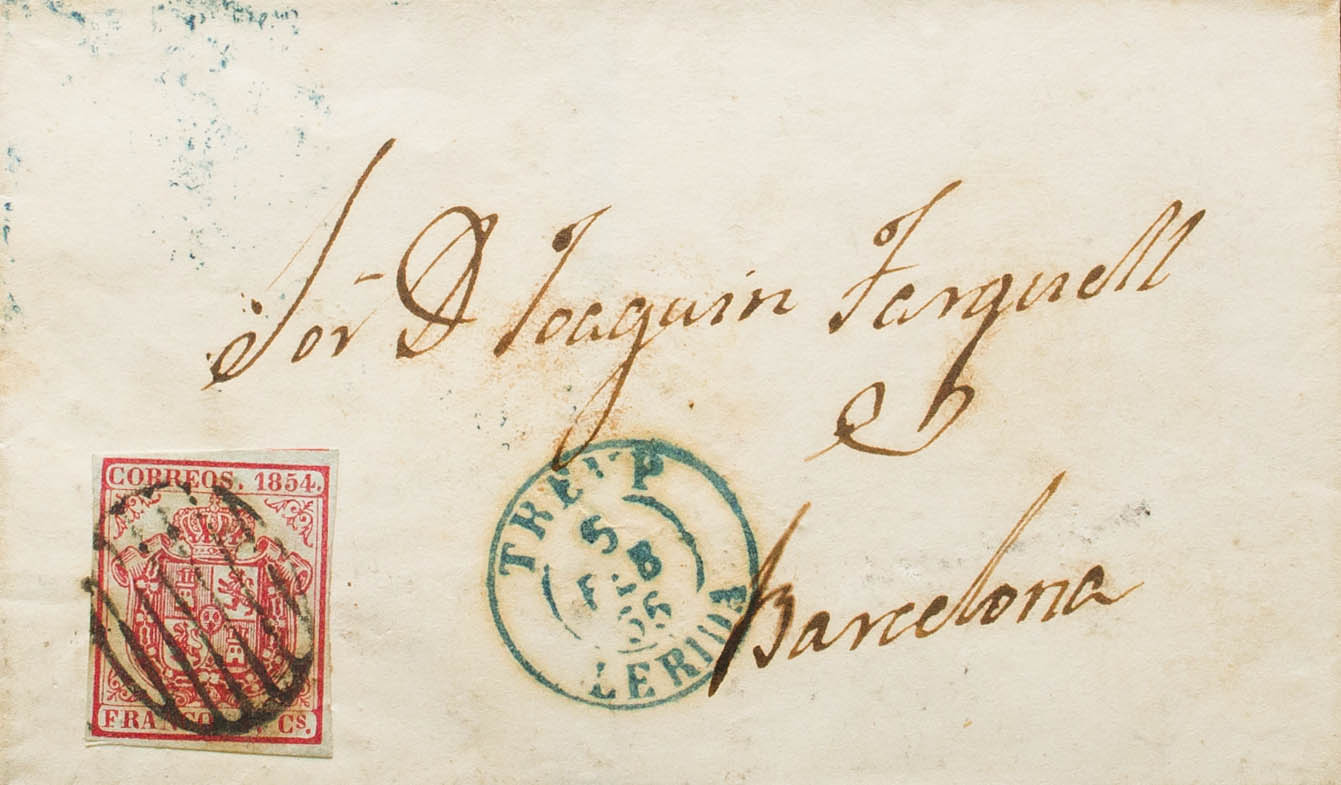 Sor D Joaquin Farguell
Barcelona
CORREOS. 1854.
FRANCO Cs.
TREMP
5
FEB
LERIDA